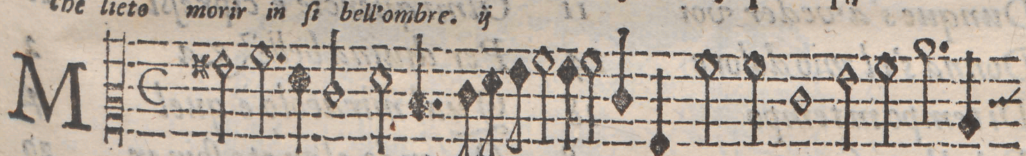 che lieto morir in si bell'ombre. ij
M